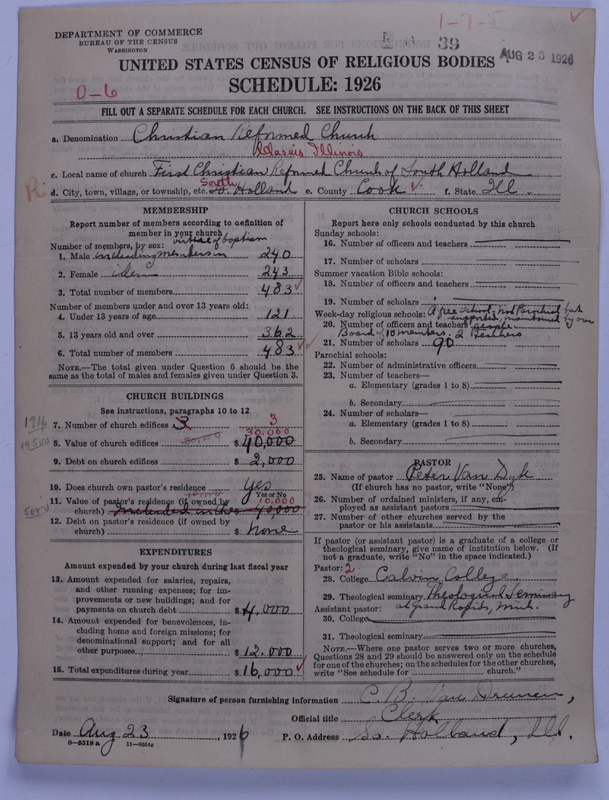 1-7-5
DEPARTMENT OF COMMERCE
BUREAU OF THE CENSUS
WASHINGTON
39
AUG 25 1926
UNITED STATES CENSUS OF RELIGIOUS BODIES
SCHEDULE: 1926
0-6
FILL OUT A SEPARATE SCHEDULE FOR EACH CHURCH. SEE INSTRUCTIONS ON THE BACK OF THIS SHEET
a. Denomination Christian Reformed Church
Classis Illinois
c. Local name of church First Christian Reformed Church of South Holland
South
d. City, town, village, or township, etc. So. Holland e. County Cook f. State Ill
MEMBERSHIP
Report number of members according to definition of
member in your church
Number of members, by sex:
1. Male including members in virtue of baptism 240
2. Female idem 243
3. Total number of members 483
Number of members under and over 13 years old:
4. Under 13 years of age 121
5. 13 years old and over 362
6. Total number of members 483
NOTE.—The total given under Question 6 should be
same as the total of males and females given under Question 3.
CHURCH BUILDINGS
See instructions, paragraphs 10 to 12
7. Number of church edifices 3 3
30,000
8. Value of church edifices $ 40,000
9. Debt on church edifices $ 2,000
10. Does church own pastor's residence? Yes
Yes or No
11. Value of pastor's residence (if owned by 10,000
church) Included in the 40,000
12. Debt on pastor's residence (if owned by
church) $ None
EXPENDITURES
Amount expended by your church during last fiscal year
13. Amount expended for salaries, repairs,
and other running expenses; for im-
provements or new buildings; and for
payments on church debt $ 4,000
14. Amount expended for benevolences, in-
cluding home and foreign missions; for
denominational support; and for all
other purposes $ 12.000
15. Total expenditures during year $ 16,000
CHURCH SCHOOLS
Report here only schools conducted by this church
Sunday schools:
16. Number of officers and teachers
17. Number of scholars
Summer vacation Bible schools:
18. Number of officers and teachers
19. Number of scholars
Week-day religious schools: A free School, not Parochial but
supported, maintained by our
20. Number of officers and teachers people
Board of 10 members. 2 Teachers
21. Number of scholars 90
Parochial schools:
22. Number of administrative officers
23. Number of teachers—
a. Elementary (grades 1 to 8)
b. Secondary
24. Number of scholars—
a. Elementary (grades 1 to 8)
b. Secondary
PASTOR
25. Name of pastor Peter Van Dyk
(If church has no pastor, write "None")
26. Number of ordained ministers, if any, em-
ployed as assistant pastors
27. Number of other churches served by the
pastor or his assistants
If pastor (or assistant pastor) is a graduate of a college or
theological seminary, give name of institution below. (If
not a graduate, write "No" in the space indicated.)
Pastor: 2
28. College Calvin College
29. Theological seminary Theological Seminary
Assistant pastor: at Grand Rapids, Mich.
30. College
31. Theological seminary
NOTE.—Where one pastor serves two or more churches,
Questions 28 and 29 should be answered only on the schedule
for one of the churches; on the schedules for the other churches,
write "See schedule for church."
Signature of person furnishing information C. B. Van Drunen,
Official title Clerk
Date Aug 23, 1926 P. O. Address So. Holland, Ill.
8-5518a 11-9054a